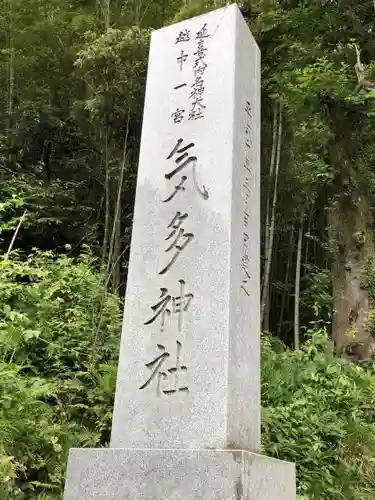 延喜式内名神大社
越中一宮
気多神社